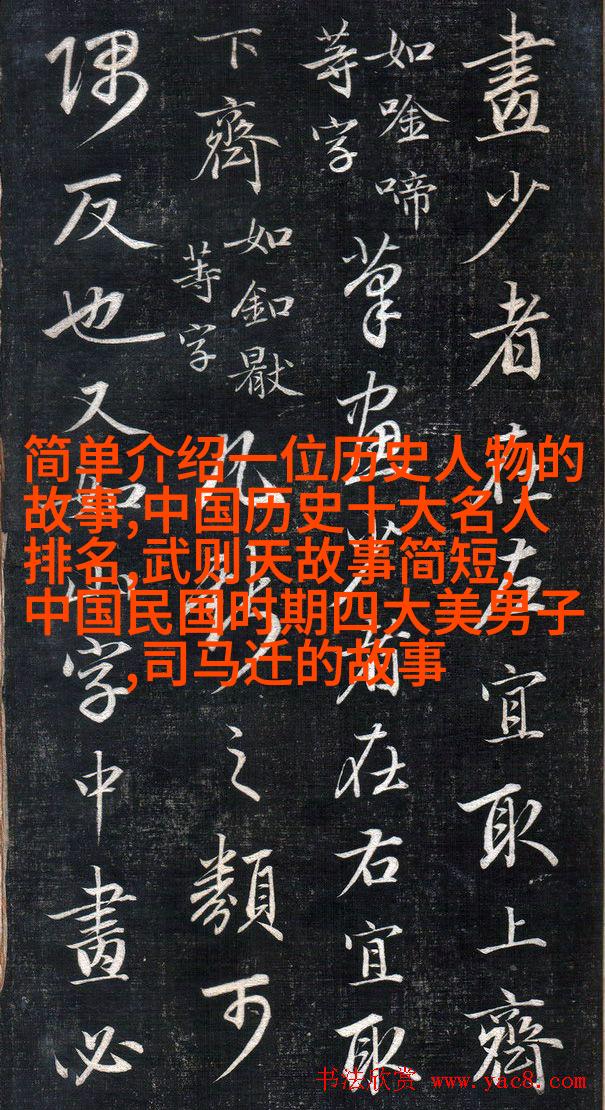 畫少者在左宜取上齊
如唫啼
等字
筆畫少者在右宜取
下齊
如釦
等字
凡之類可
隅反也又如山字中畫必
简单介绍一位历史人物的
故事,中国历史十大名人
排名,武则天故事简短,
中国民国时期四大美男子
,司马迁的故事
书法欣赏 www.yac8.com